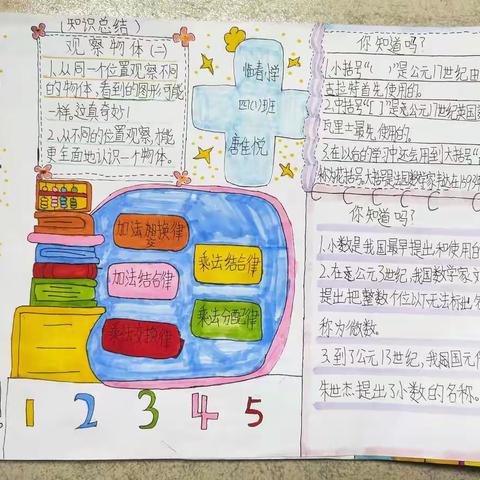 (知识总结)
观察物体(二)
1.从同一个位置观察不同
的物体,看到的图形可能
一样,这真奇妙!
2、从不同的位置观察,才能
更全面地认识一个物体。
临春小学
四(1)班
唐佳悦
加法交换律
加法结合律
乘法交换律
乘法结合律
乘法分配律
1 2 3 4 5
你知道吗?
1.小括号“( )”是公元17世纪由
古拉特首先使用的。
2.中括号“[ ]”是公元17世纪英国数
瓦里士最先使用的。
3.在以后的学习中还会用到大括号“
你知道吗?
1.小数是我国最早提出和使用的
2.在公元3世纪,我国数学家
提出把整数个位以下无法标出名
称为微数。
3.到了公元13世纪,我国元代
朱世杰提出了小数的名称。